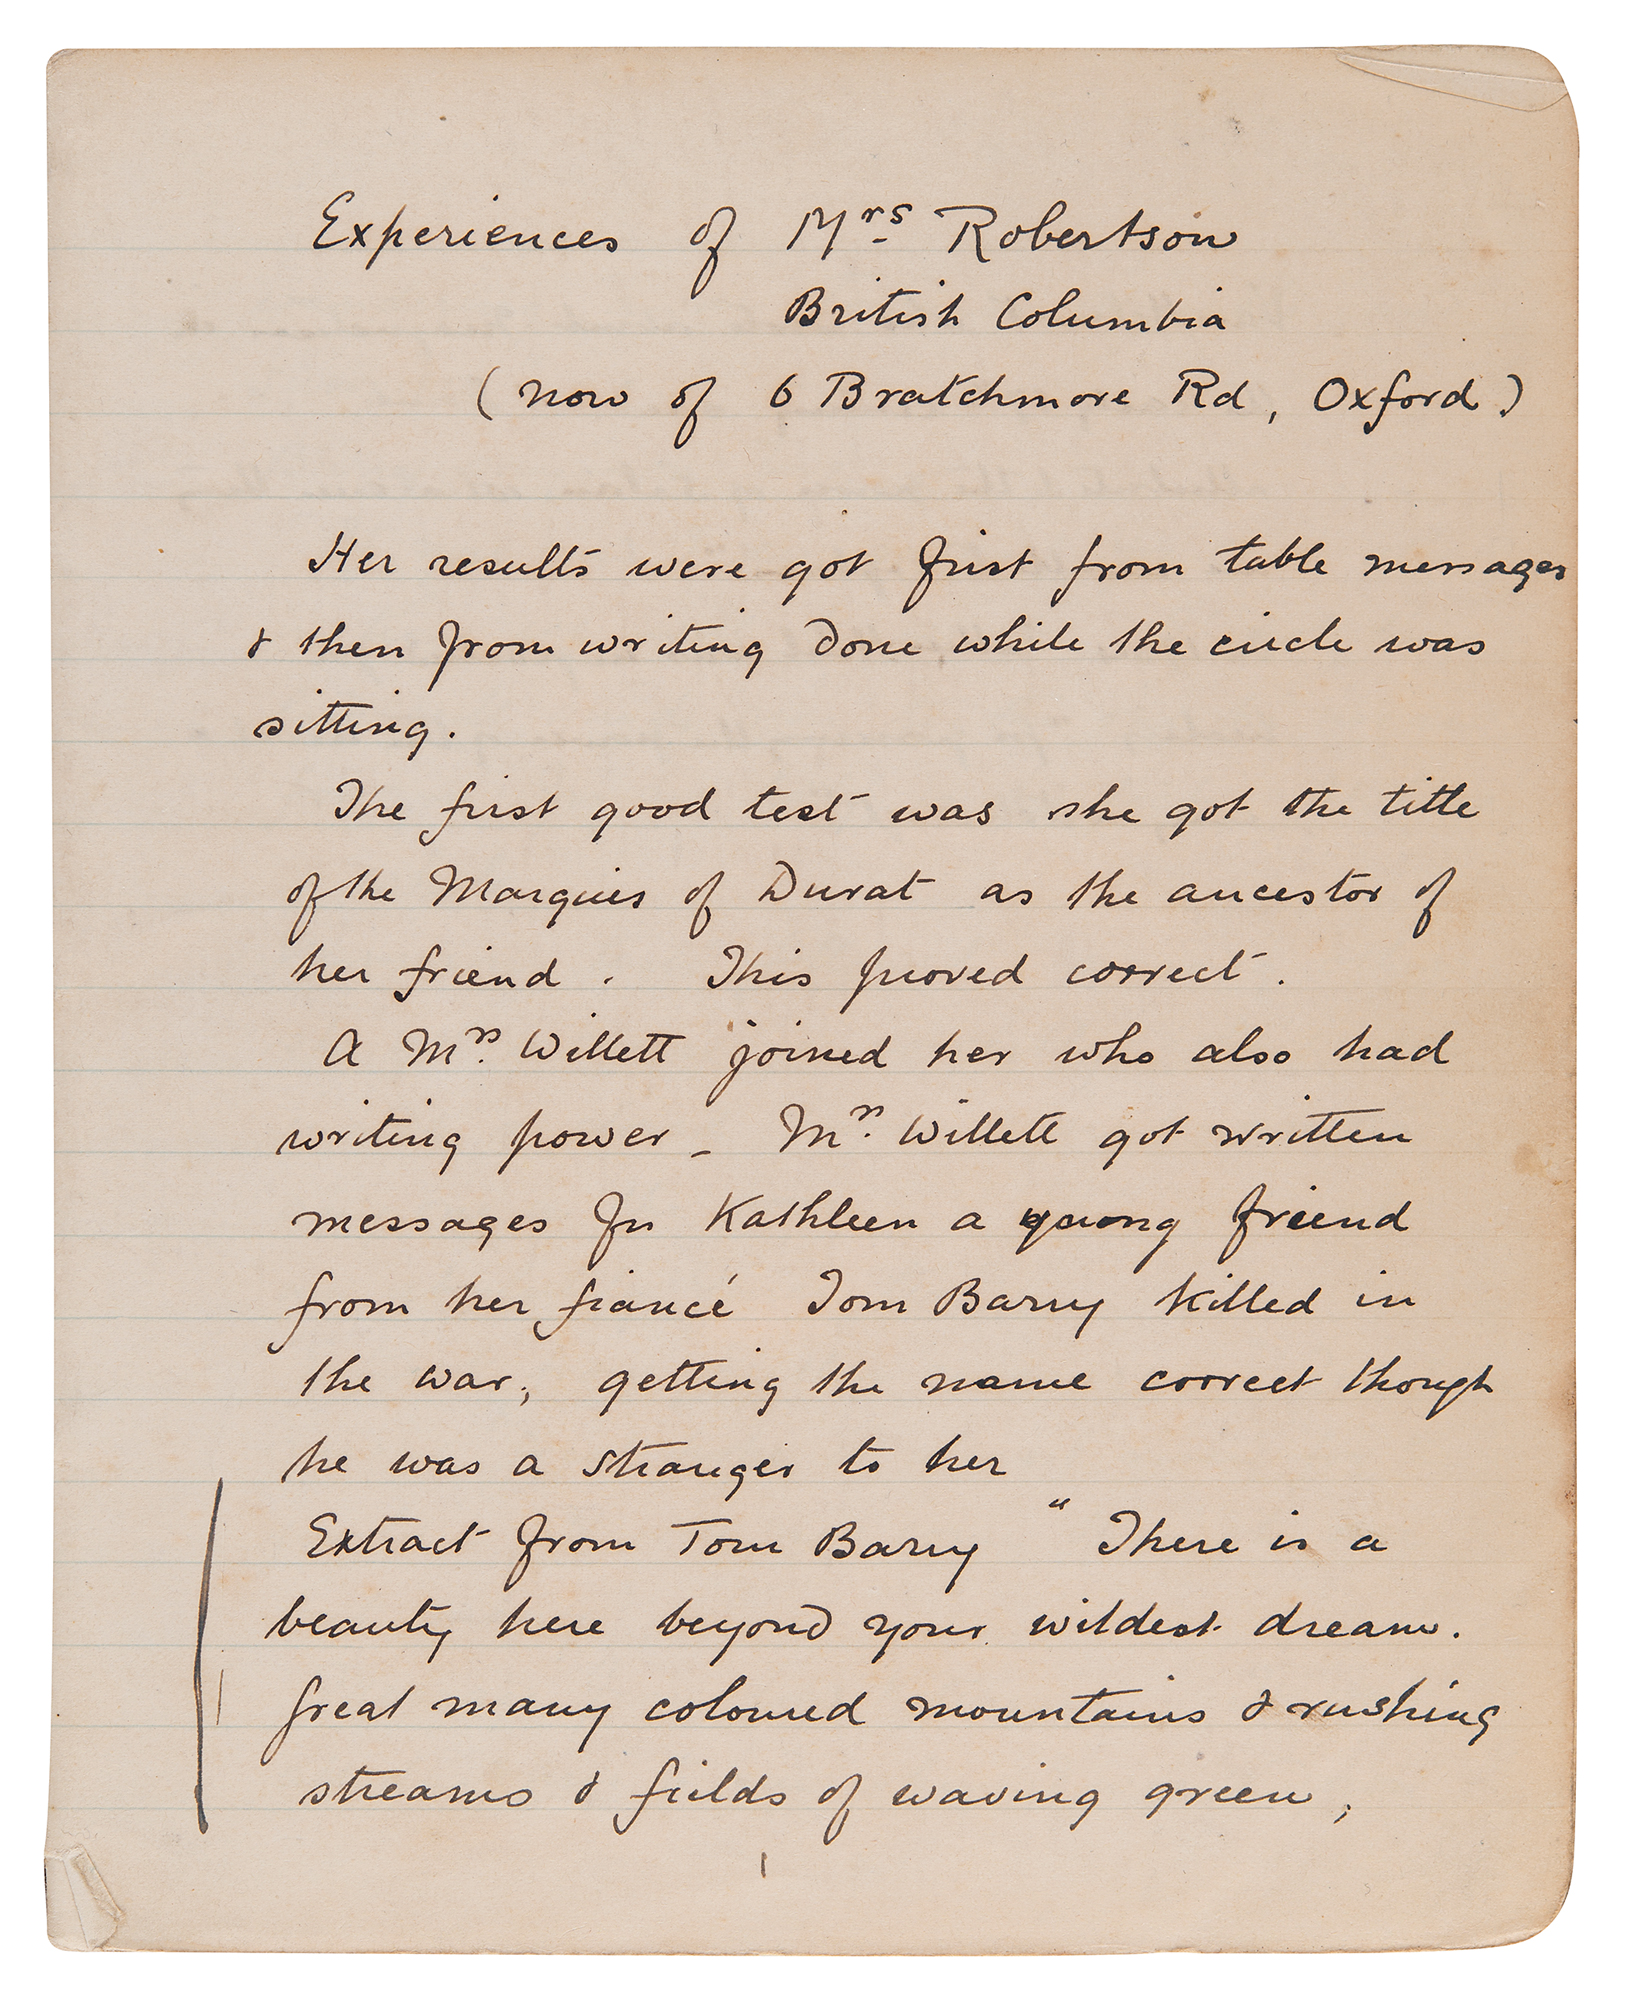 Experiences of Mrs Robertson
British Columbia
(now of 6 Bratchmore Rd, Oxford)
Her results were got first from table messages
& then from writing done while the circle was
sitting.
The first good test was she got the title
of the Marquis of Durat as the ancestor of
her friend. This proved correct.
A Mrs. Willett joined her who also had
writing power – Mrs. Willett got written
messages for Kathleen a young friend
from her fiancé Tom Barry killed in
the war, getting the name correct though
he was a stranger to her
Extract from Tom Barry "There is a
beauty here beyond your wildest dreams.
Great many coloured mountains & rushing
streams & fields of waving green,
1